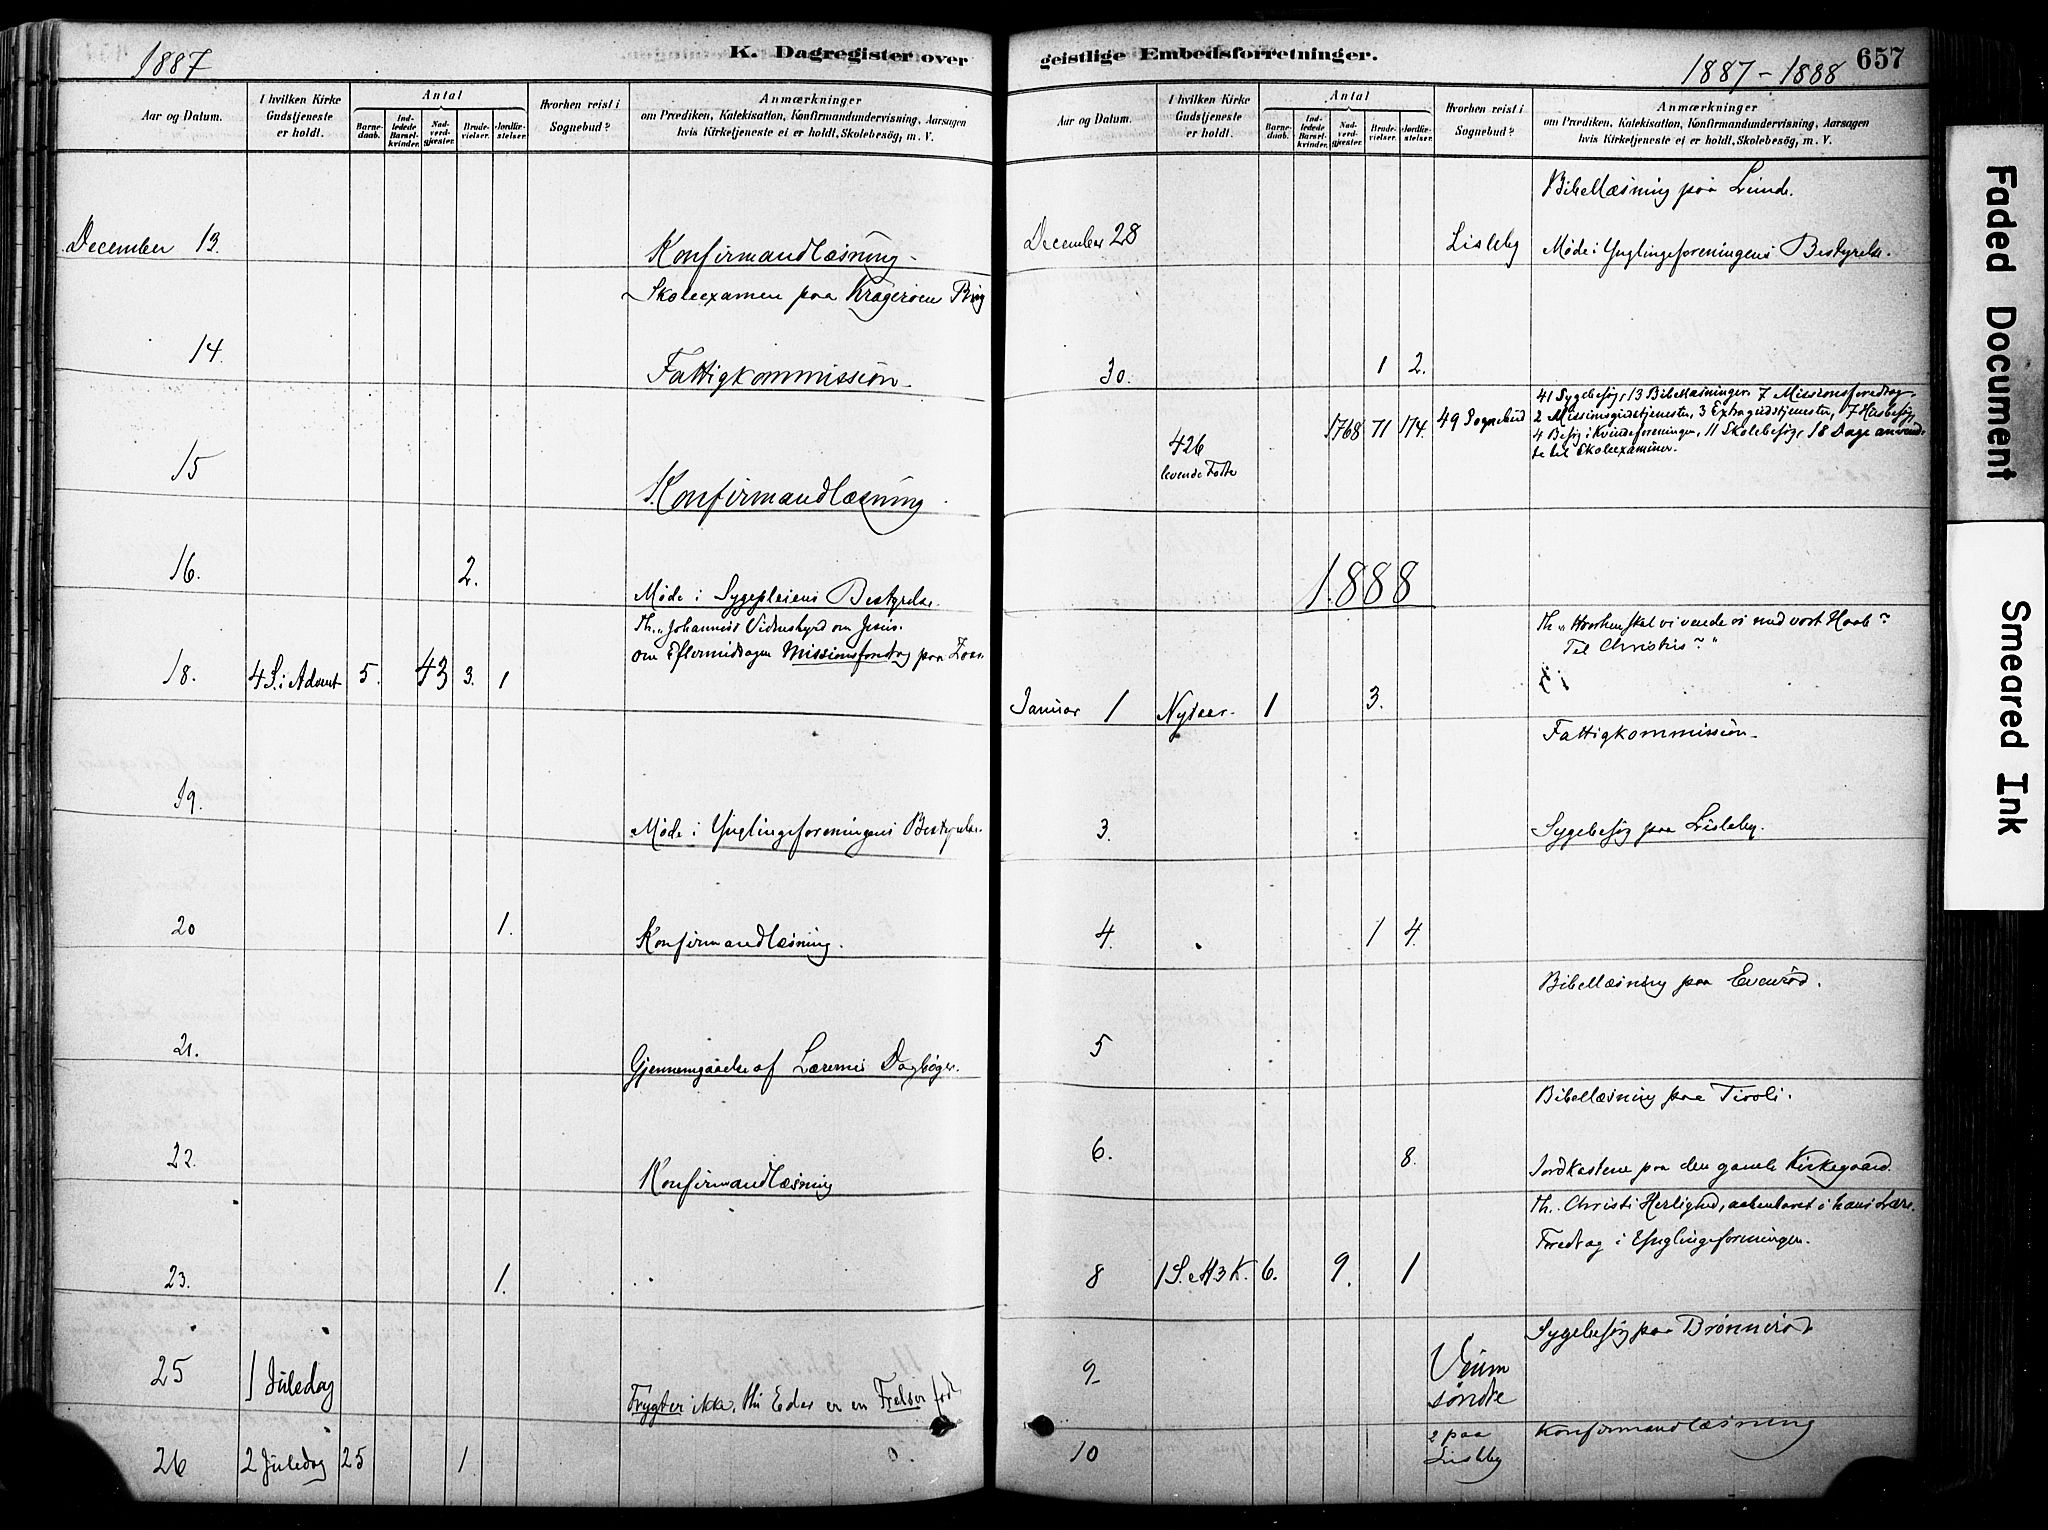 1887
K. Dagregister over
Aar og Datum.
I hvilken Kirke Gudstjeneste er holdt.
Antal
Barnedaab.
Indledede Barselkvinder.
Nadverdgjæster.
Brudevielser.
Jordfæstelser.
Hvorhen reist i Sognebud?
Anmærkninger
om Prædiken, Katekisation, Konfirmandundervisning, Aarsagen
hvis Kirketjeneste ei er holdt, Skolebesög, m. V.
December 13.
Konfirmandlæsning.
Skoleexamen paa Kragerøen
14.
Fattigkommission.
15
Konfirmandlæsning
16. 2.
Møde i Sygepleiens Bestyrelse.
Th. „Johannes's Vidnesbyrd om Jesus.
om Eftermidagen Missionsforedrag paa
18. 4 S. i Advent 5. 43 3. 1
19.
Møde i Ynglingeforeningens Bestyrelse.
20 1.
Konfirmandlæsning.
21.
Gjennemgaaelse af Lærernes Dagbøger.
22.
Konfirmandlæsning
23. 1.
25 1 Juledag
Frygter ikke. Thi Eder er en Frelser født.
26 2 Juledag 25 1
geistlige Embedsforretninger.
1887-1888 657
Aar og Datum.
I hvilken Kirke Gudstjeneste er holdt.
Antal
Barnedaab.
Indledede Barselkvinder.
Nadverdgjæster.
Brudevielser.
Jordfæstelser.
Hvorhen reist i Sognebud?
Anmærkninger
om Prædiken, Katekisation, Konfirmandundervisning, Aarsagen
hvis Kirketjeneste ei er holdt, Skolebesög, m. V.
Bibellæsning paa Lunde.
December 28 Lisleby Møde i Ynglingeforeningens Bestyrelse.
30. 1 2.
41 Sygebesøg, 13 Bibellæsninger. 7 Missionsforedrag
2 Missionsgudstjenester, 3 Extragudstjenester, 7 Husbesøg,
426 levende Fødte 1768 71 174. 49 Sognebud
4 Besøg i Kvindeforeningen, 11 Skolebesøg, 18 Dage anvendte
til Skoleexaminer.
1888
Th „Hvorhen skal vi vende os med vort Haab?
Til Christus?"
Januar 1 Nytaar. 1 3.
Fattigkommission.
3. Sygebesøg paa Lisleby.
4. 1 4.
Bibellæsning paa Evenrød.
5
Bibellæsning paa Tivoli.
6. 8. Jordkastene paa den gamle Kirkegaard.
Th. Christi Herlighed, aabenbaret i hans Lære.
Foredrag i Ynglingeforeningen.
8 1 S. e H 3 K. 6. 9. 1
Sygebesøg paa Brønnerød
9 Veum søndre
Konfirmandlæsning
10 2 paa Lisleby
Faded Document
Smeared Ink